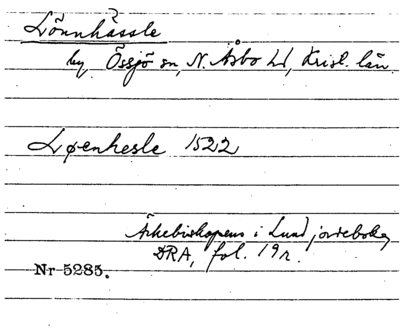 Lönnhässle
by Össjö sn, N. Åsbo hd, Krist. län.
Løenhesle 1522
Ärkebiskopens i Lund jordebok,
DRA, fol. 19r.
Nr 5285.